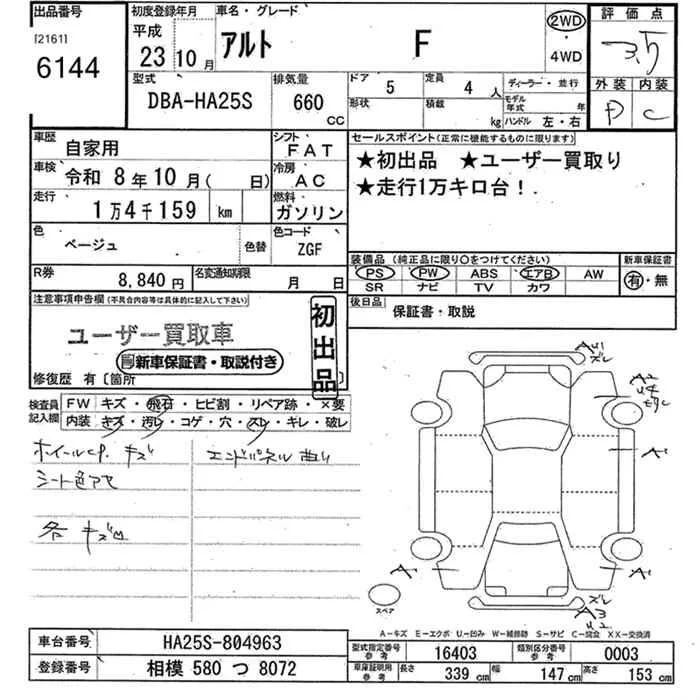 出品番号 初度登録年月 車名・グレード 評価点
[2161] 平成
6144 23年10月 アルト F 2WD・4WD 3.5
型式 排気量 ドア 定員 ディーラー・並行 外装 内装
DBA-HA25S 660 CC 5 4人 D C
形状 積載 kg モデル年式 年
ハンドル 左・右
車歴 自家用 シフト FAT セールスポイント(正常に機能するものに限ります)
車検 令和 8年10月( 日) 冷房 AC ★初出品 ★ユーザー買取り
走行 1万4千159 km 燃料 ガソリン ★走行1万キロ台!.
色 ベージュ 色替 色コード ZGF
装備品(純正品に限り○をつけてください) 新車保証書
R券 8,840円 名変通知期限 月 日 PS PW ABS エアB AW 有・無
SR ナビ TV カワ
注意事項申告欄(不具合内容等は具体的に記入して下さい) 後日品
初出品 保証書・取説
ユーザー買取車
新車保証書・取説付き
修復歴 有〔箇所 〕
検査員記入欄 FW キズ・飛石・ヒビ割・リペア跡・×要
内装 キズ・汚レ・コゲ・穴・スレ・キレ・破レ
ホイールcp. キズ エンドパネル曲り
シート色アセ
各 キズ凹
AU1
ズレ
A2
U4
A1
A1
ズレ
A3
U2
スペア
A-キズ E-エクボ U-凹み W-補修跡 S-サビ C-腐食 XX-交換済
車台番号 HA25S-804963 型式指定番号 参考 16403 類別区分番号 参考 0003
登録番号 相模 580 つ 8072 車庫証明用 参考 長さ 339 cm 幅 147 cm 高さ 153 cm